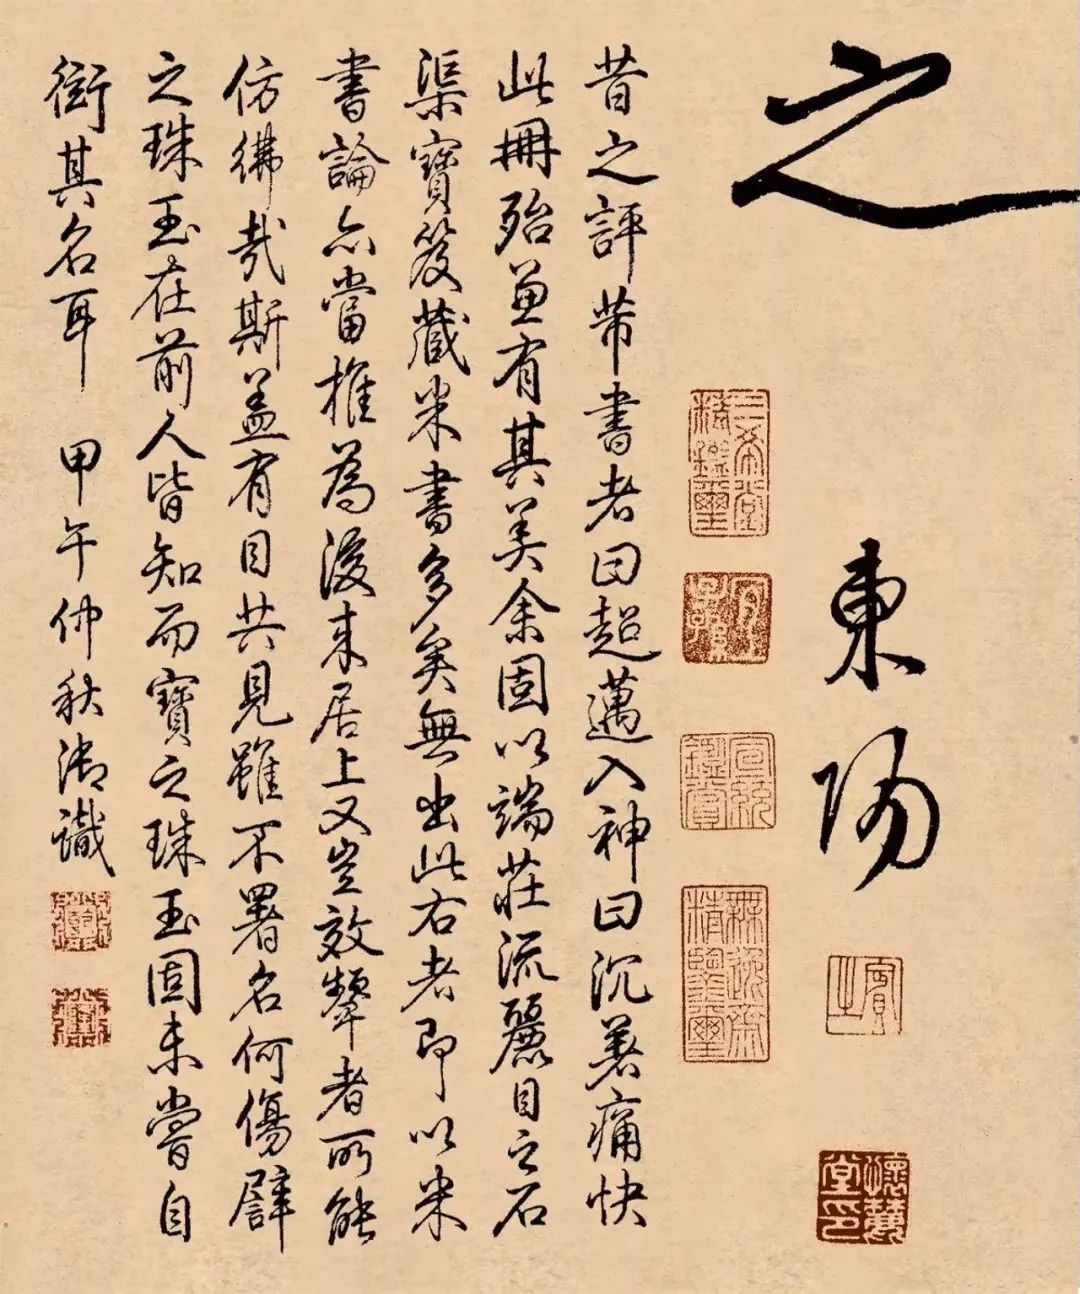 之
東陽
賓之
懷麓堂印
三希堂精鑑璽
宜子孫
宣統鑑賞
無逸齋精鑑璽
昔之評芾書者曰超邁入神曰沉著痛快
此冊殆兼有其美余固以端莊流麗目之石
渠寶笈藏米書多矣無出此右者即以米
書論亦當推為後來居上又豈效顰者所能
仿彿哉斯蓋有目共見雖不署名何傷譬
之珠玉在前人皆知而寶之珠玉固未嘗自
衒其名耳 甲午仲秋御識